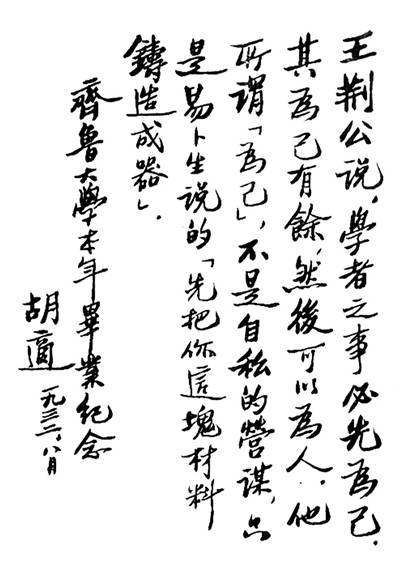 王荆公说，學者之事必先為己．
其為己有餘，然後可以為人．他
所謂「為己」，不是自私的營謀，只
是易卜生说的「先把你這塊材料
鑄造成器」．
齊魯大學本年畢業紀念
胡適
一九三二，八月